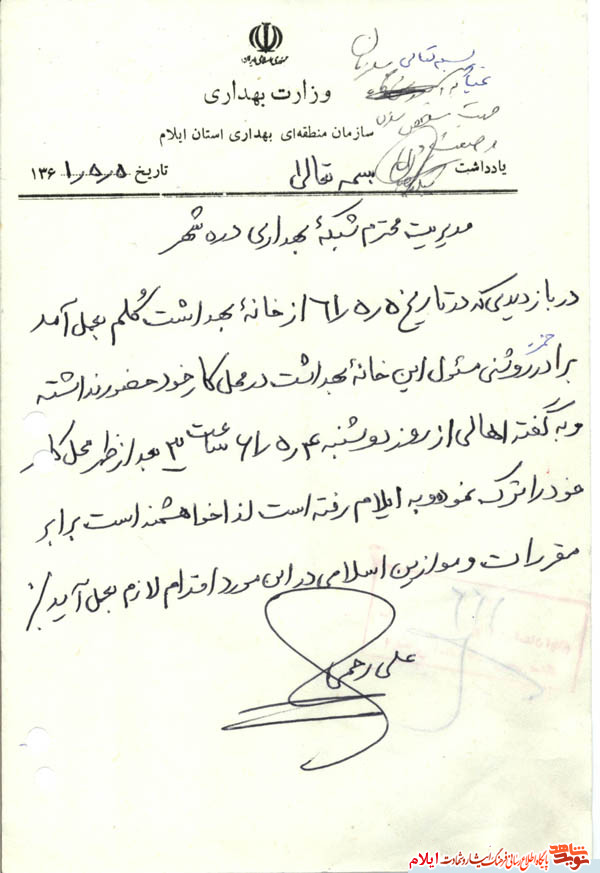 جمهوری اسلامی ایران
وزارت بهداری
سازمان منطقه‌ای بهداری استان ایلام
بسمه تعالی
یادداشت
تاریخ ۱۳۶۱/۵/۵
بسمه تعالی
مدیریت محترم شبکهٔ بهداری دره شهر
در بازدیدی که در تاریخ ۶۱/۵/۵ از خانهٔ بهداشت کُلم بعمل آمد
برادر روشنی مسئول این خانهٔ بهداشت در محل کار خود حضور نداشته
و به گفته اهالی از روز دوشنبه ۶۱/۵/۴ ساعت ۳ بعد از ظهر محل کار
خود را ترک نموده و به ایلام رفته است لذا خواهشمند است برابر
مقررات و موازین اسلامی در این مورد اقدام لازم بعمل آید ./
علی رحمی
نوید شاهد
پایگاه اطلاع رسانی فرهنگ ایثار و شهادت ایلام